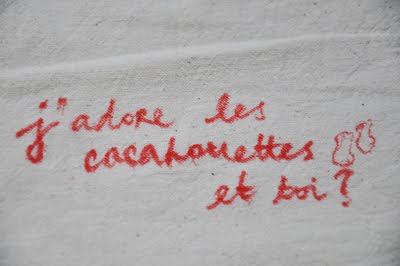 j'adore les
cacahouettes
et toi?